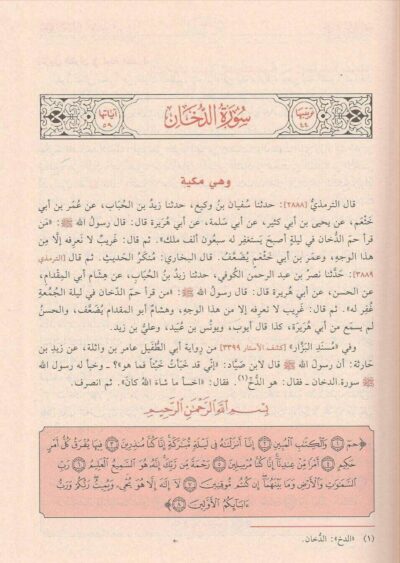 ترتيبها ٤٤
سُورَةُ الدُّخَانِ
آيَاتُهَا ٥٩
وهي مكية
قال الترمذيُّ [٢٨٨٨]: حدثنا سُفيان بنُ وكيع، حدثنا زيدُ بن الحُبَاب، عن عُمَر بن أبي
خَثْعَم، عن يحيى بن أبي كثير، عن أبي سَلمة، عن أبي هُرَيرة قال: قال رسولُ اللَّه ﷺ: «من
قرأ حمَ الدُّخان في ليلةٍ أصبحَ يَستغفِر له سبعُون ألفَ ملك». ثم قال: غريبٌ لا نَعرفه إلّا مِن
هذا الوجهِ، وعمر بن أبي خَثْعَم يُضَعَّف. قال البخاري: مُنكَرُ الحديثِ. ثم قال [الترمذي
٢٨٨٩]: حَدَّثنا نصرُ بن عبد الرحمٰن الكُوفي، حدثنا زيدُ بنُ الحُبَاب، عن هِشام أبي المِقدام،
عن الحسن، عن أبي هُريرة قال: قال رسُول اللَّه ﷺ: «من قرَأ حمَ الدُّخان في ليلة الجُمعَةِ
غُفِر له». ثم قال: غَرِيب لا نَعرفه إلا من هذا الوَجهِ، وهشامٌ أبو المقدام يُضَعَّف، والحسنُ
لم يسمَع من أبي هُرَيرَة، كذا قال أيوب، ويونُس بن عُبيد، وعليُّ بن زيد.
وفي «مُسنَدِ البَزَّار» [كشف الأستار ٣٣٩٩] من رواية أبي الطُّفَيل عامر بن واثلة، عن زيدِ بن
حَارثة: أن رسولَ اللَّه ﷺ قال لابن صَيَّاد: «إنّي قد خَبَأتُ خَبْئاً فما هو؟» ـ وخبأ له رسول اللَّه
ﷺ سورة الدخان ـ فقال: هو الدُّخ(١). فقال: «اخسأ ما شاءَ اللَّهُ كانَ». ثم انصرف.
بِسْمِ اللَّهِ الرَّحْمَٰنِ الرَّحِيمِ
﴿حمٓ ۝١ وَالْكِتَابِ الْمُبِينِ ۝٢ إِنَّآ أَنزَلْنَاهُ فِي لَيْلَةٍ مُّبَارَكَةٍ إِنَّا كُنَّا مُنذِرِينَ ۝٣ فِيهَا يُفْرَقُ كُلُّ أَمْرٍ
حَكِيمٍ ۝٤ أَمْرًا مِّنْ عِندِنَآ إِنَّا كُنَّا مُرْسِلِينَ ۝٥ رَحْمَةً مِّن رَّبِّكَ إِنَّهُ هُوَ السَّمِيعُ الْعَلِيمُ ۝٦ رَبِّ
السَّمَاوَاتِ وَالْأَرْضِ وَمَا بَيْنَهُمَآ إِن كُنتُم مُّوقِنِينَ ۝٧ لَآ إِلَٰهَ إِلَّا هُوَ يُحْيِي وَيُمِيتُ رَبُّكُمْ وَرَبُّ
ءَابَآئِكُمُ الْأَوَّلِينَ ۝٨﴾
(١) «الدخ»: الدُّخان.